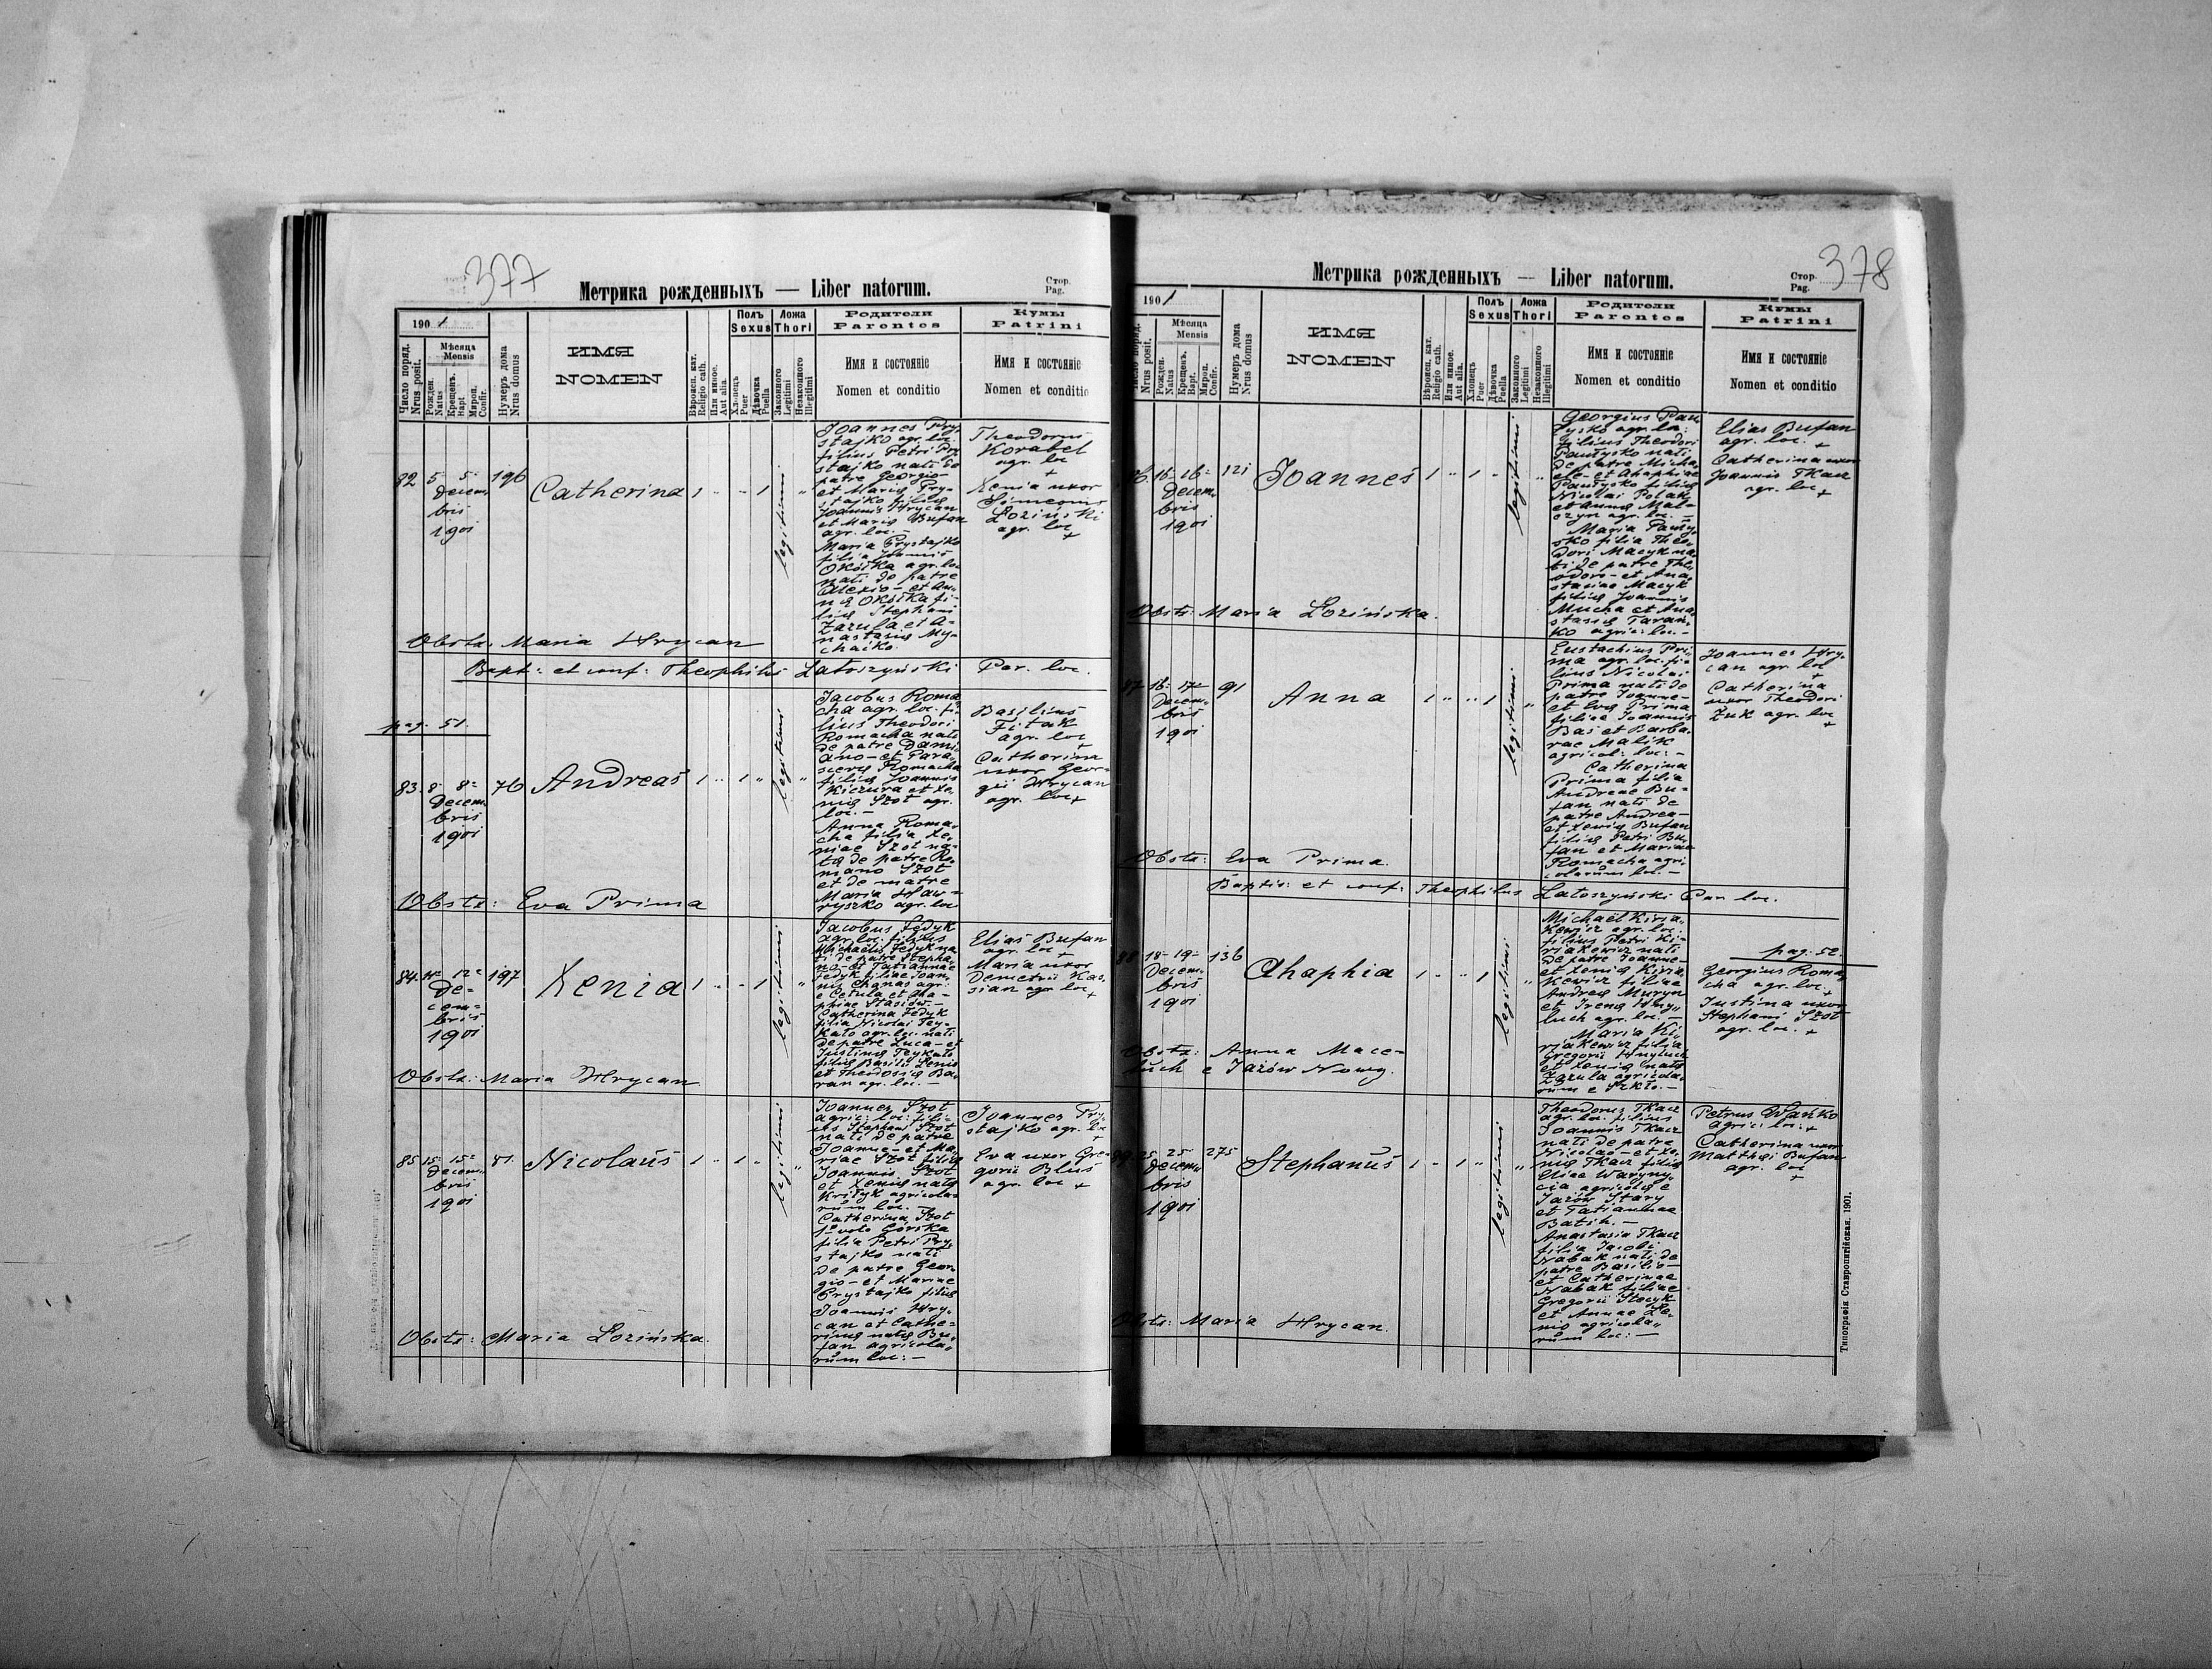 377
Метрика рожденныхъ — Liber natorum.
Стор.
Pag.
1901
Число поряд.
Nrus posit.
Мѣсяца
Mensis
Рожден.
Natus
Крещенъ.
Bapt.
Мѵроп.
Confir.
Нумеръ дома
Nrus domus
ИМЯ
NOMEN
Вѣроисп. кат.
Religio cath.
Или иное.
Aut alia.
Полъ
Sexus
Хлопецъ
Puer
Дѣвочка
Puella
Ложа
Thori
Законного
Legitimi
Незаконного
Illegitimi
Родители
Parentes
Имя и состоянiе
Nomen et conditio
Кумы
Patrini
Имя и состоянiе
Nomen et conditio
82 5 5
Decem
bris
1901
196
Catherina
1 - - 1
legitimi
Joannes Pry-
stajko agr. loc.
filius Petri Pry
stajko nati de
patre Georgio-
et Mariae Pry-
stajko filiae
Joannis Hrycan
et Mariae Bufan
agr. loc. -
Maria Prystajko
filia Joannis
Okótka agr. loc
nati de patre
Alexio - et An-
nae Okótka fi-
liae Stephani
Zazula et A-
nastasiae My-
chajko
Theodorus
Korabel
agr. loc
+
Xenia uxor
Simeonis
Łoziński
agr. loc
+
Obstz. Maria Hrycan
Bapt: et conf: Theophilus Latoszyński Par. loc.
pag. 51.
83. 8 8
Decem
bris
1901
76
Andreas
1 - 1
legitimi
Jacobus Roma
cha agr. loc. fi-
lius Theodori
Romacha nati
de patre Dami
ano - et Para-
scevae Romacha
filiae Joannis
Kiczura et Xe-
niae Szot agr.
loc. -
Anna Roma-
cha filia Xe-
niae Szot na-
tae de patre Ro-
mano Szot
et de matre
Maria Haw-
ryszko agr. loc
Basilius
Fitak
agr. loc
+
Catherina
uxor Geor-
gii Hrycan
agr. loc +
Obstz: Eva Prima
84. 12
De-
cem-
bris
1901
197
Xenia
1 - - 1
legitimi
Jacobus Fedyk
agr. loc. filius
Michaelis Fedyk na
ti de patre Stepha
no - et Tatiannae
Fedyk filiae Joan
nis Chanas agr.
e Cetula et Aha-
phiae Stasiów -
Catherina Fedyk
filia Nicolai Tey-
kało agr. loc. nati
de patre Luca - et
Justinae Teykało
filiae Basilii Lenio
et Theodosiae Ba-
ran agr. loc. -
Elias Bufan
agr. loc +
Maria uxor
Demetrii Kas-
sian agr. loc
+
Obstz: Maria Hrycan
85 15 15
Decem
bris
1901
81.
Nicolaus
1 - 1
legitimi
Joannes Szot
agric: loc: fili-
us Stephani Szot
nati de patre
Joanne - et Ma-
riae Szot filiae
Joannis Szot
et Xeniae natae
Krityk agricola-
rum loc. -
Catherina Szot
1o voto Górska
filia Petri Pry-
stajko nati
de patre Geor-
gio - et Mariae
Prystajko filiae
Joannis Hry-
can et Cathe-
rinae natae Bu-
fan agricola-
rum loc: -
Joannes Pry-
stajko agr. loc
+
Eva uxor Gre-
gorii Blus
agr. loc +
Obstz: Maria Łozińska.
378
Метрика рожденныхъ — Liber natorum.
Стор.
Pag.
1901
Nrus posit.
Мѣсяца
Mensis
Рожден.
Natus
Крещенъ.
Bapt.
Мѵроп.
Confir.
Нумеръ дома
Nrus domus
ИМЯ
NOMEN
Вѣроисп. кат.
Religio cath.
Или иное.
Aut alia.
Полъ
Sexus
Хлопецъ
Puer
Дѣвочка
Puella
Ложа
Thori
Законного
Legitimi
Незаконного
Illegitimi
Родители
Parentes
Имя и состоянiе
Nomen et conditio
Кумы
Patrini
Имя и состоянiе
Nomen et conditio
86. 16 16
Decem
bris
1901
121
Joannes
1 - 1 -
legitimi
Georgius Pań
tysko agr. loc:
filius Theodori
Pańtysko nati
de patre Micha
ele - et Ahaphiae
Pańtysko filiae
Nicolai Polak
et Annae Mał-
czyn agr. loc. -
Maria Pańty-
sko filia Theo-
dori Macyk na
ti de patre The
odoro - et Ana
stasiae Macyk
filiae Joannis
Mucha et Ana
stasiae Taran-
ko agric: loc. -
Elias Bufan
agr. loc. +
Catherina uxor
Joannis Tkacz
agr. loc +
Obstz: Maria Łozińska.
87 16 17
Decem
bris
1901
91
Anna
1 - - 1
legitimi
Eustachius Pri
ma agr. loc. fi-
lius Nicolai
Prima nati de
patre Joanne -
et Evae Prima
filiae Joannis
Bas et Barba-
rae Malik
agricol: loc: -
Catherina
Prima filia
Andreae Bu-
fan nati de
patre Andrea -
et Xeniae Bufan
filiae Petri Bu-
fan et Mariae
Romacha agri-
colarum loc. -
Joannes Hry-
can agr. loc
+
Catherina
uxor Theodori
Żuk agr. loc
+
Obstz: Eva Prima.
Baptis: et conf: Theophilus Latoszyński Par loc.
88 18 19
Decem
bris
1901
136
Ahaphia
1 - - 1
legitimi
Michael Kiria-
kewicz agr. loc.
filius Petri Ki-
riakewicz nati
de patre Joanne -
et Xeniae Kiria-
kewicz filiae
Andreae Muryn
et Irenae Hny-
luch agr. loc. -
Maria Ki-
riakewicz filia
Gregorii Hnyluch
et Xeniae natae
Zazula agricola-
rum e Szkło. -
pag. 52.
Georgius Roma
cha agr. loc.
+
Justina uxor
Stephani Szot
agr. loc. +
Obstz: Anna Mace-
luch e Jazów Nowy.
89. 25 25
Decem
bris
1901
275
Stephanus
1 - 1
legitimi
Theodorus Tkacz
agr. loc. filius
Joannis Tkacz
nati de patre
Nicolao - et Xe-
niae Tkacz filiae
Eliae Waryny-
cia agricolae e
Jazów Stary
et Tatiannae
Batih. -
Anastasia Tkacz
filia Jacobi
Nabak nati de
patre Basilio -
et Catherinae
Nabak filiae
Gregorii Stecyk
et Annae Le-
nio agricola-
rum loc: -
Petrus Wańko
agric: loc: +
Catherina uxor
Matthaei Bufan
agr. loc
+
Obstz: Maria Hrycan.
Типографія Ставропигійская. 1901.